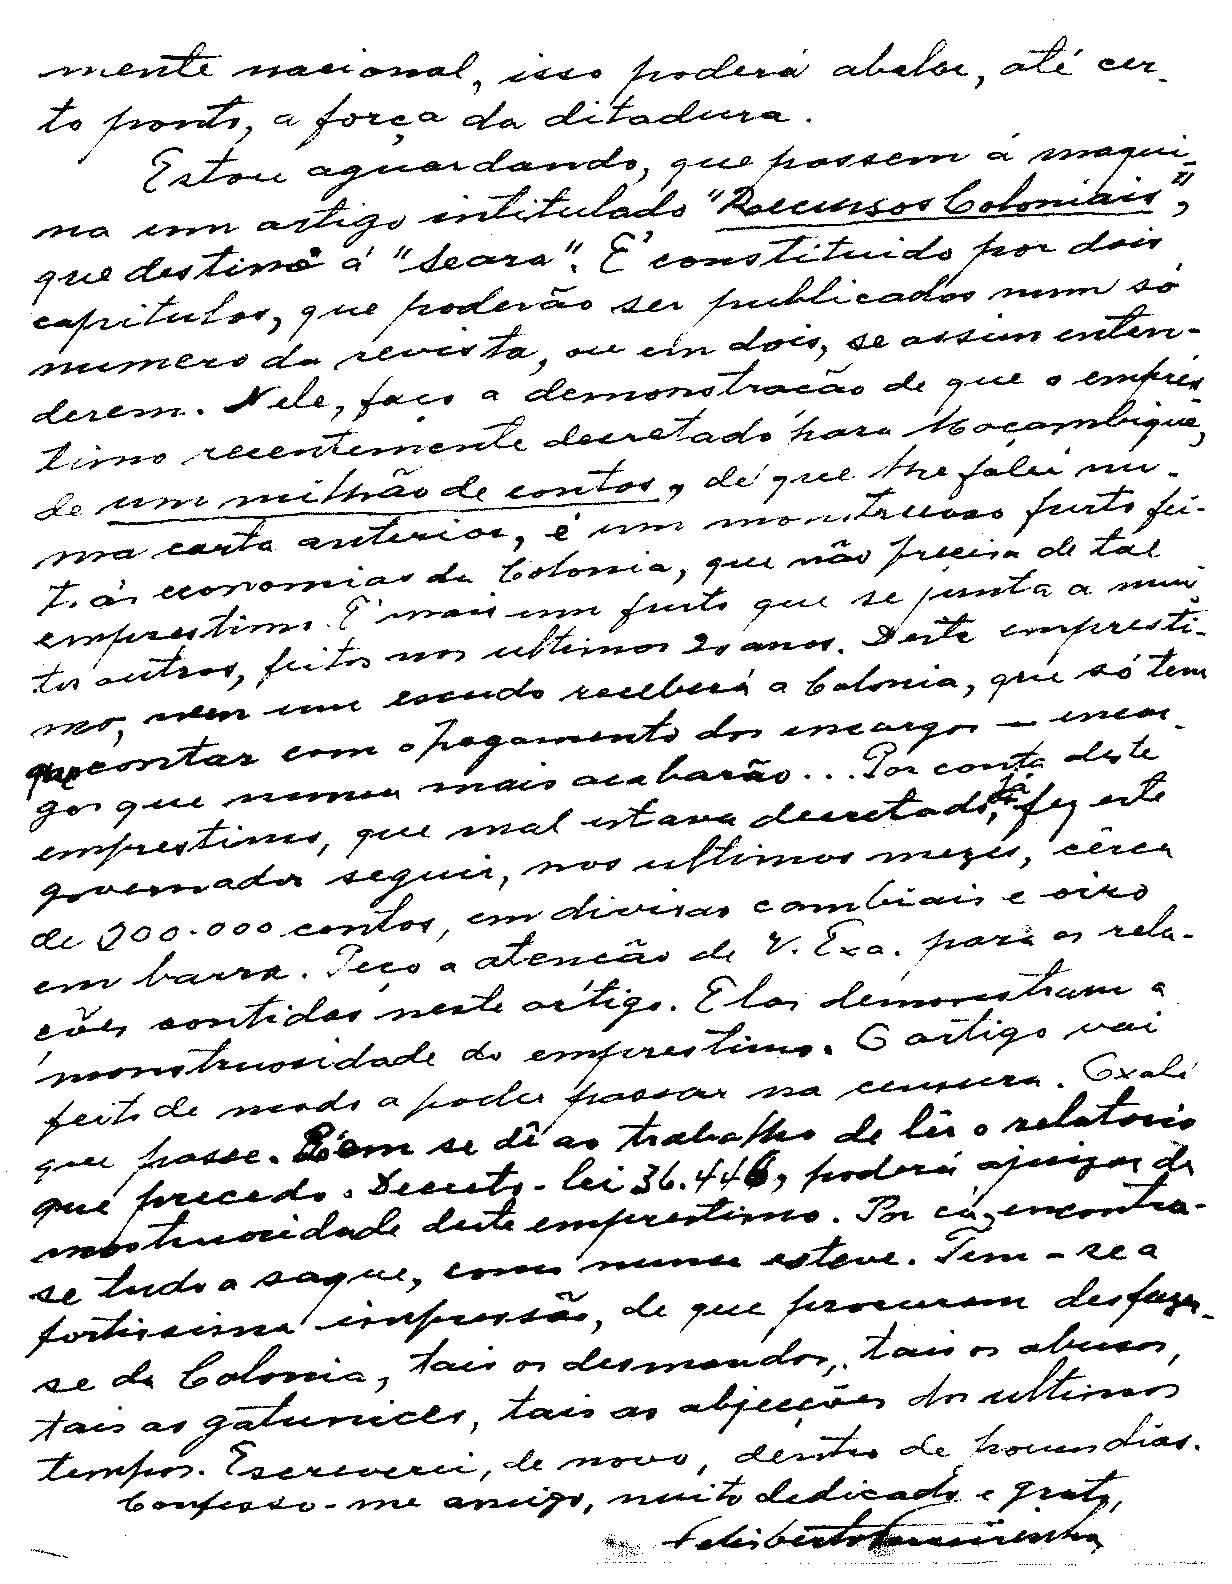 mente nacional, isso poderá abalar, até cer-
to ponto, a força da ditadura.
Estou aguardando, que passem á maqui-
na um artigo intitulado "Recursos Coloniais",
que destino á "Seara". E' constituido por dois
capitulos, que poderão ser publicados num só
numero da revista, ou em dois, se assim enten-
derem. Nele, faço a demonstração de que o emprés-
timo recentemente decretado para Moçambique,
de um milhão de contos, de que lhe falei nu-
ma carta anterior, é um monstruoso furto fei-
to ás economias da Colonia, que não precisa de tal
emprestimo. E' mais um furto que se junta a mui-
tos outros, feitos nos ultimos 20 anos. Deste empresti-
mo, nem um escudo receberá a Colonia, que só tem
que contar com o pagamento dos encargos — encar-
gos que nunca mais acabarão... Por conta deste
emprestimo, que mal estava decretado, já fez este
governador seguir, nos ultimos mezes, cêrca
de 200.000 contos, em divisas cambiais e oiro
em barra. Peço a atenção de V. Exa. para as rela-
ções contidas neste artigo. Elas demonstram a
monstruosidade do emprestimo. O artigo vai
feito de modo a poder passar na censura. Oxalá
que passe. Quem se dê ao trabalho de lêr o relatorio
que precede o Decreto-lei 36.446, poderá ajuizar da
mostruosidade deste emprestimo. Por cá, encontra-
se tudo a saque, como nunca esteve. Tem-se a
fortissima impressão, de que procuram desfazer-
se da Colonia, tais os desmandos, tais os abusos,
tais as gatunices, tais as abjecções dos ultimos
tempos. Escreverei, de novo, dentro de poucos dias.
Confesso-me amigo, muito dedicado e grato,